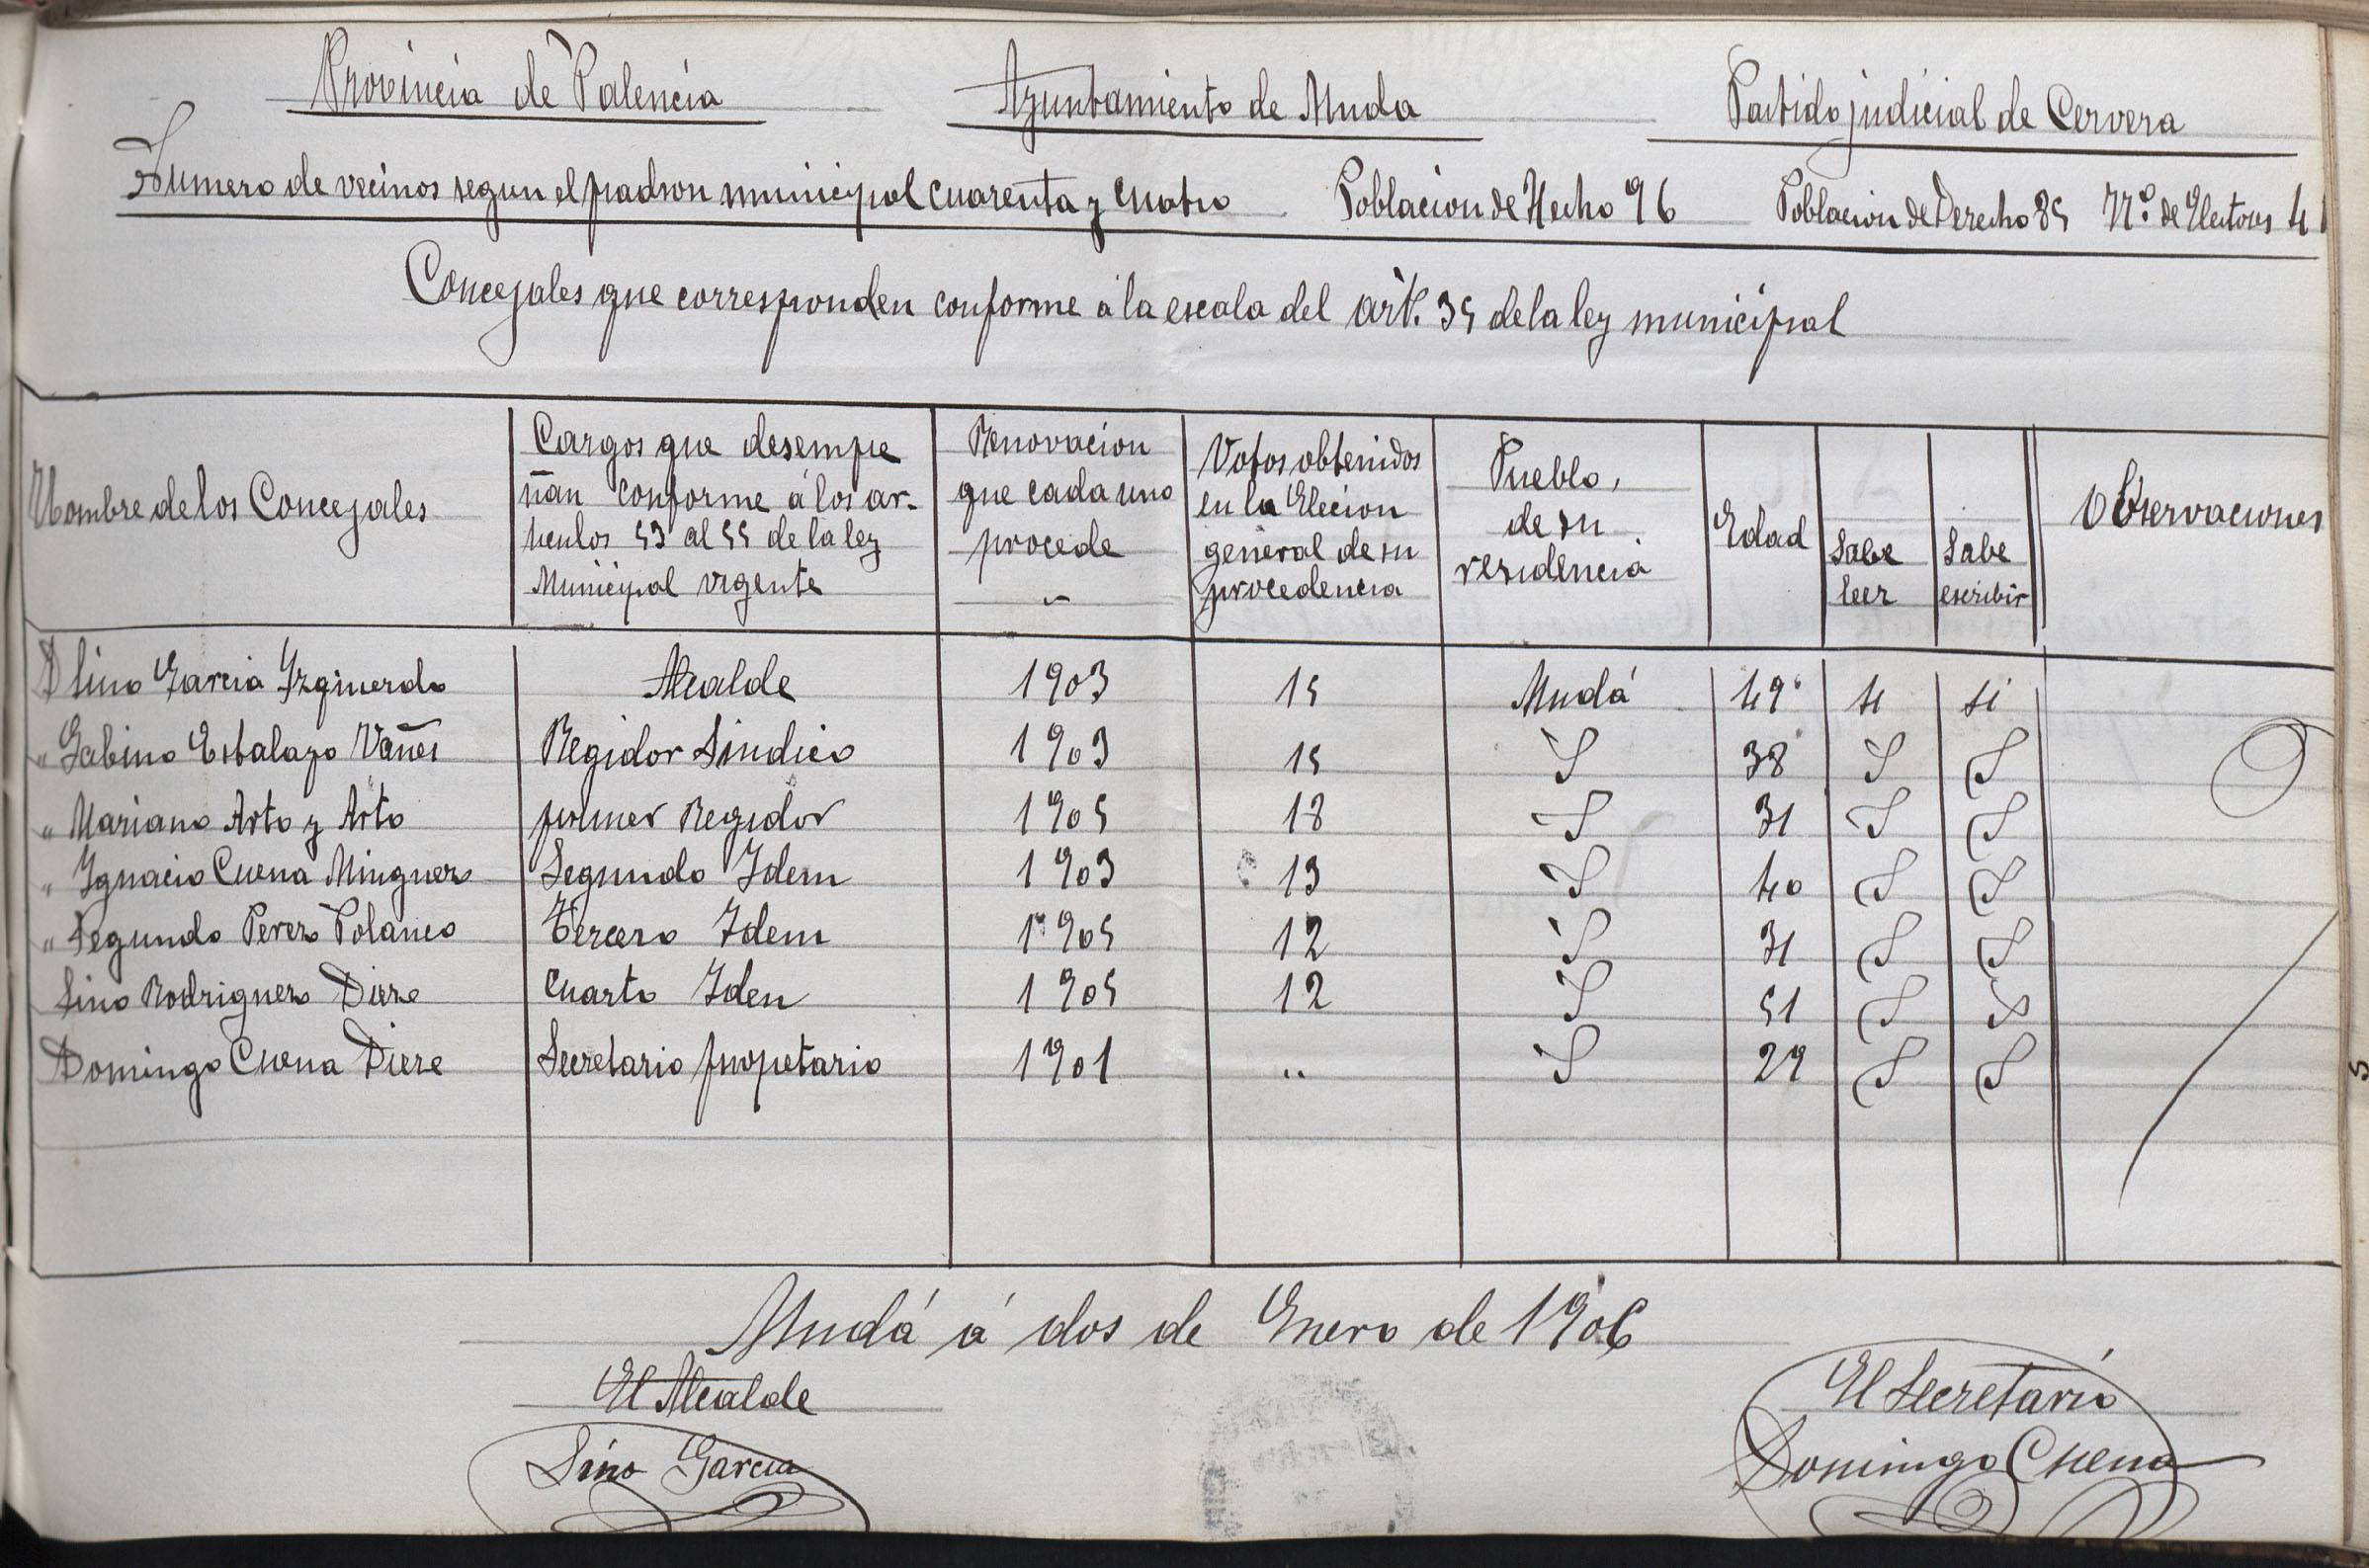 Provincia de Palencia Ayuntamiento de Muda Partido judicial de Cervera
Numero de vecinos segun el padron municipal cuarenta y cuatro Poblacion de Hecho 96 Poblacion de Derecho 85 N.º de Electores 41
Concejales que corresponden conforme a la escala del art. 35 de la ley municipal
Nombre de los Concejales
Cargos que desempe
ñan conforme á los ar-
ticulos 53 al 55 de la ley
Municipal vigente
Renovacion
que cada uno
procede
Votos obtenidos
en la Elecion
general de su
procedencia
Pueblo,
de su
residencia
Edad
Sabe
leer
Sabe
escribir
Observaciones
D Lino Garcia Yzquierdo Alcalde 1903 15 Mudá 49 si si
" Gabino Estalayo Vañes Regidor Sindico 1903 15 38
" Mariano Arto y Arto primer Regidor 1905 18 31
" Ygnacio Cuena Minguez Segundo Idem 1903 13 40
" Segundo Perez Polanco Tercero Idem 1905 12 31
Lino Rodriguez Diez Cuarto Iden 1905 12 51
Domingo Cuena Dieze Secretario propetario 1901 " 29
Mudá á dos de Enero de 1906
El Alcalde
Lino Garcia
El Secretario
Domingo Cuena